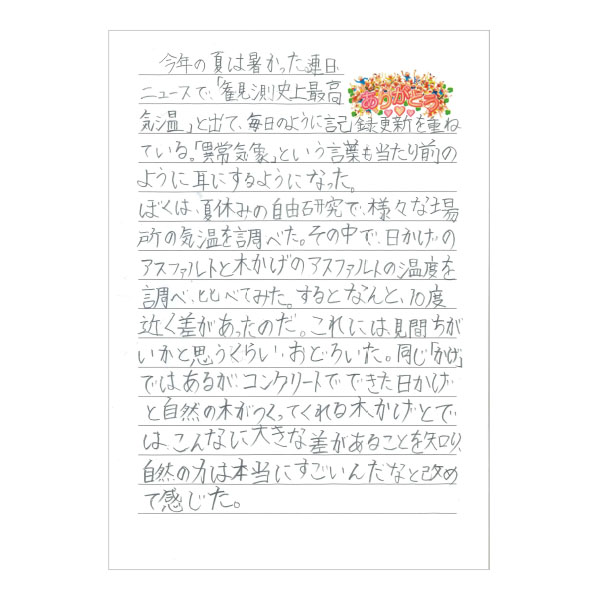 今年の夏は暑かった。連日
ニュースで、「観測史上最高
ありがとう
気温」と出て、毎日のように記録更新を重ね
ている。「異常気象」という言葉も当たり前の
ように耳にするようになった。
ぼくは、夏休みの自由研究で、様々な場
所の気温を調べた。その中で、日かげの
アスファルトと木かげのアスファルトの温度を
調べ、比べてみた。するとなんと、10度
近く差があったのだ。これには見間ちが
いかと思うくらい、おどろいた。同じ「かげ」
ではあるが、コンクリートでできた日かげ
と自然の木がつくってくれる木かげとで
は、こんなに大きな差があることを知り、
自然の力は本当にすごいんだなと改め
て感じた。